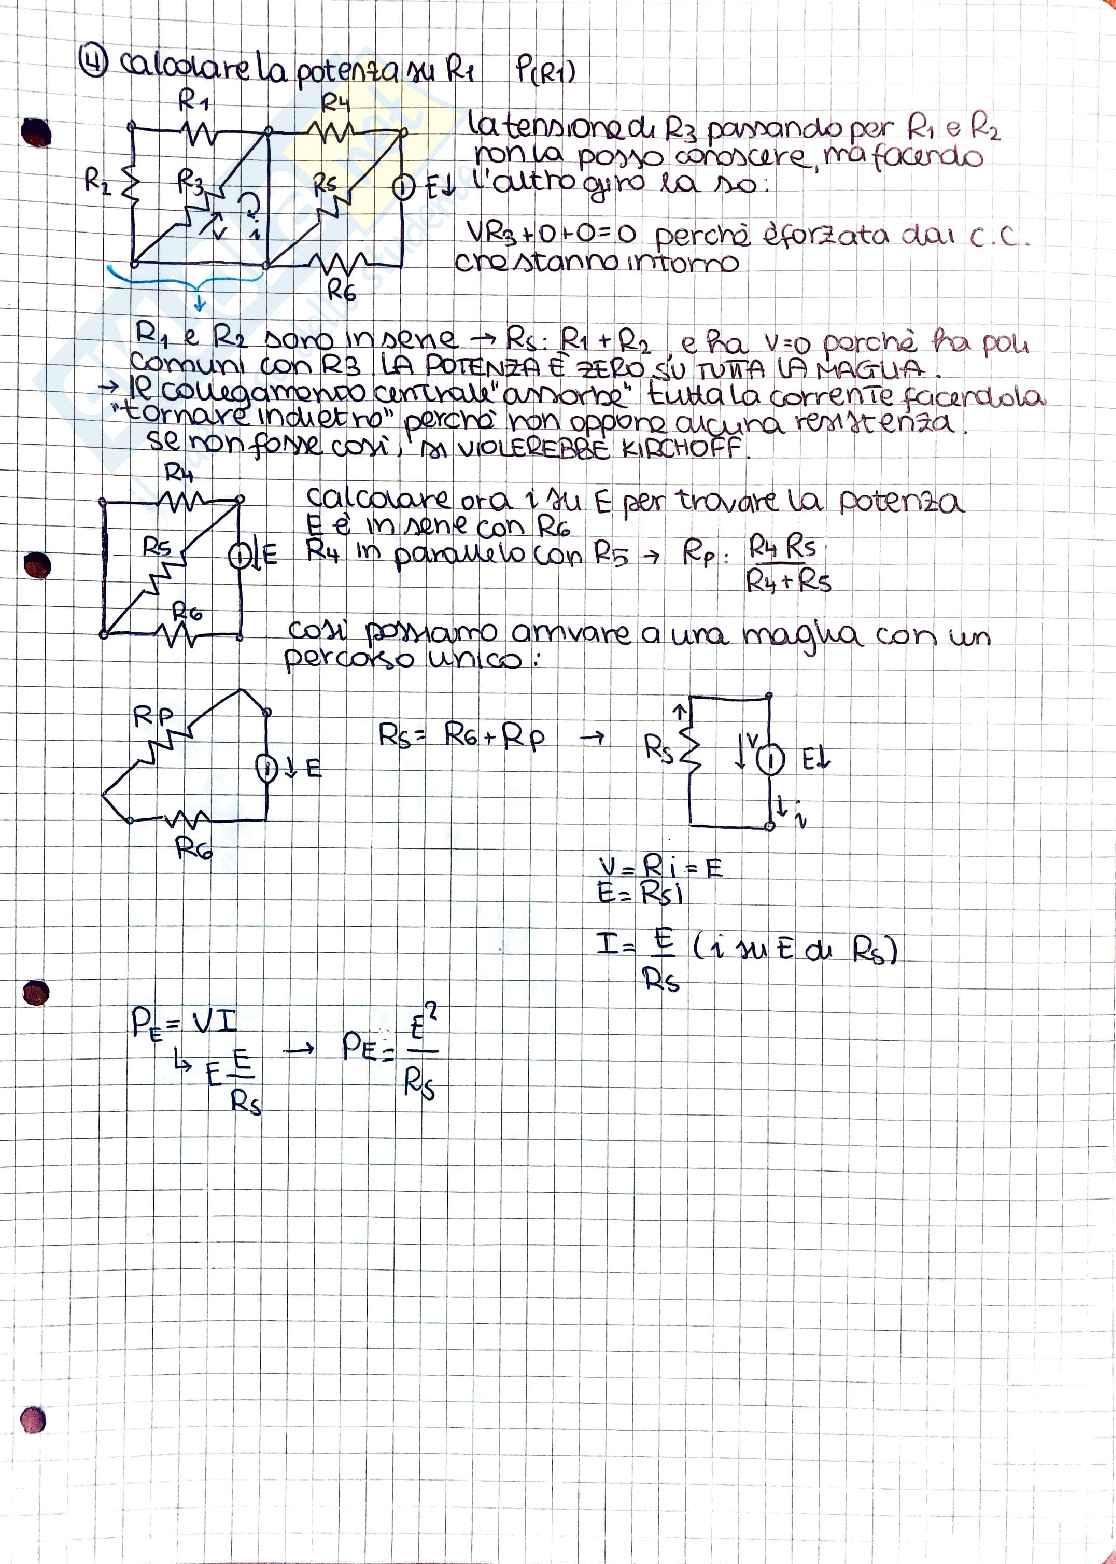 ④ calcolare la potenza su R1 P(R1)
R1
R4
R2
R3
R5
E↓
V
i
R6
la tensione di R3 passando per R1 e R2
non la posso conoscere, ma facendo
l'altro giro la so:
VR3+0+0=0 perchè è forzata dai c.c.
che stanno intorno
R1 e R2 sono in serie → Rs: R1+R2, e ha v=0 perchè ha poli
comuni con R3 LA POTENZA È ZERO SU TUTTA LA MAGLIA.
→ il collegamento centrale "assorbe" tutta la corrente facendola
"tornare indietro" perchè non oppone alcuna resistenza.
se non fosse così, si VIOLEREBBE KIRCHOFF.
R4
R5
↓E
R6
calcolare ora i su E per trovare la potenza
E è in serie con R6
R4 in parallelo con R5 → Rp: R4 R5 / R4+R5
così possiamo arrivare a una maglia con un
percorso unico:
RP
↓E
R6
Rs= R6+Rp →
Rs
↓V
E↓
↓i
V=Ri=E
E=Rsi
I= E/Rs (i su E di Rs)
PE= VI
↳ E E/Rs → PE= E²/Rs